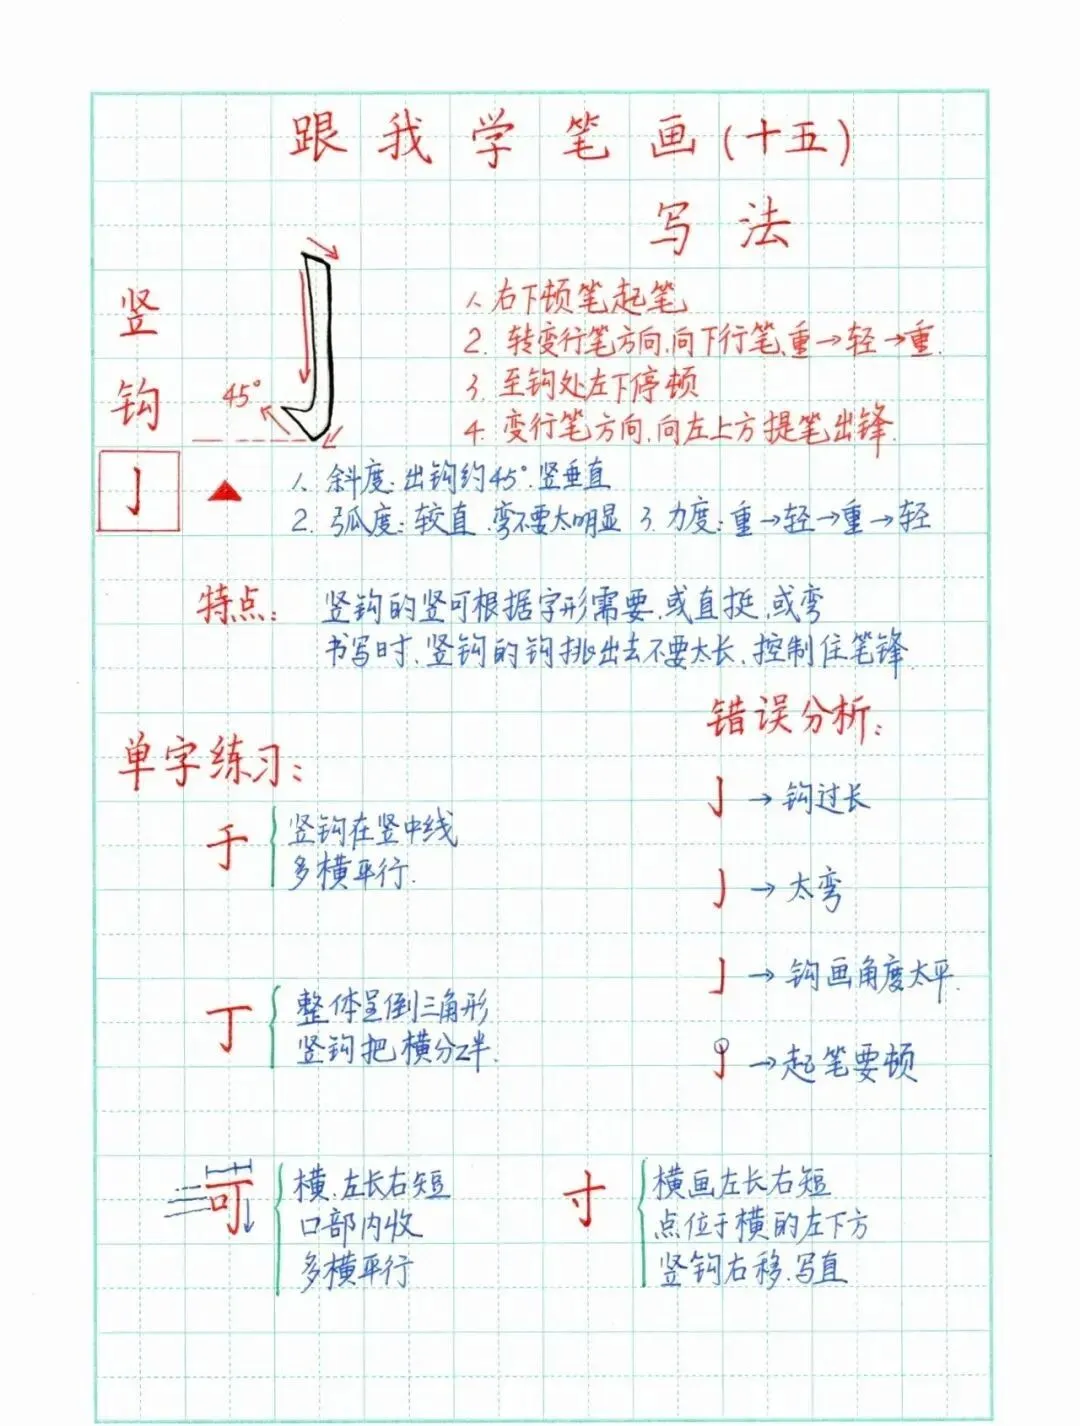 跟我学笔画(十五)
写法
竖钩
亅
45°
1、右下顿笔起笔
2. 转变行笔方向,向下行笔,重→轻→重.
3、至钩处左下停顿
4. 变行笔方向,向左上方提笔出锋.
▲
1、斜度:出钩约45°.竖垂直
2. 弧度:较直.弯不要太明显 3.力度:重→轻→重→轻
特点: 竖钩的竖可根据字形需要,或直挺,或弯
书写时,竖钩的钩挑出去不要太长、控制住笔锋.
错误分析:
亅→钩过长
亅→太弯
亅→钩画角度太平.
亅→起笔要顿
单字练习:
于
竖钩在竖中线
多横平行.
丁
整体呈倒三角形
竖钩把横分2半.
可
横.左长右短
口部内收
多横平行
寸
横画左长右短
点位于横的左下方
竖钩右移.写直